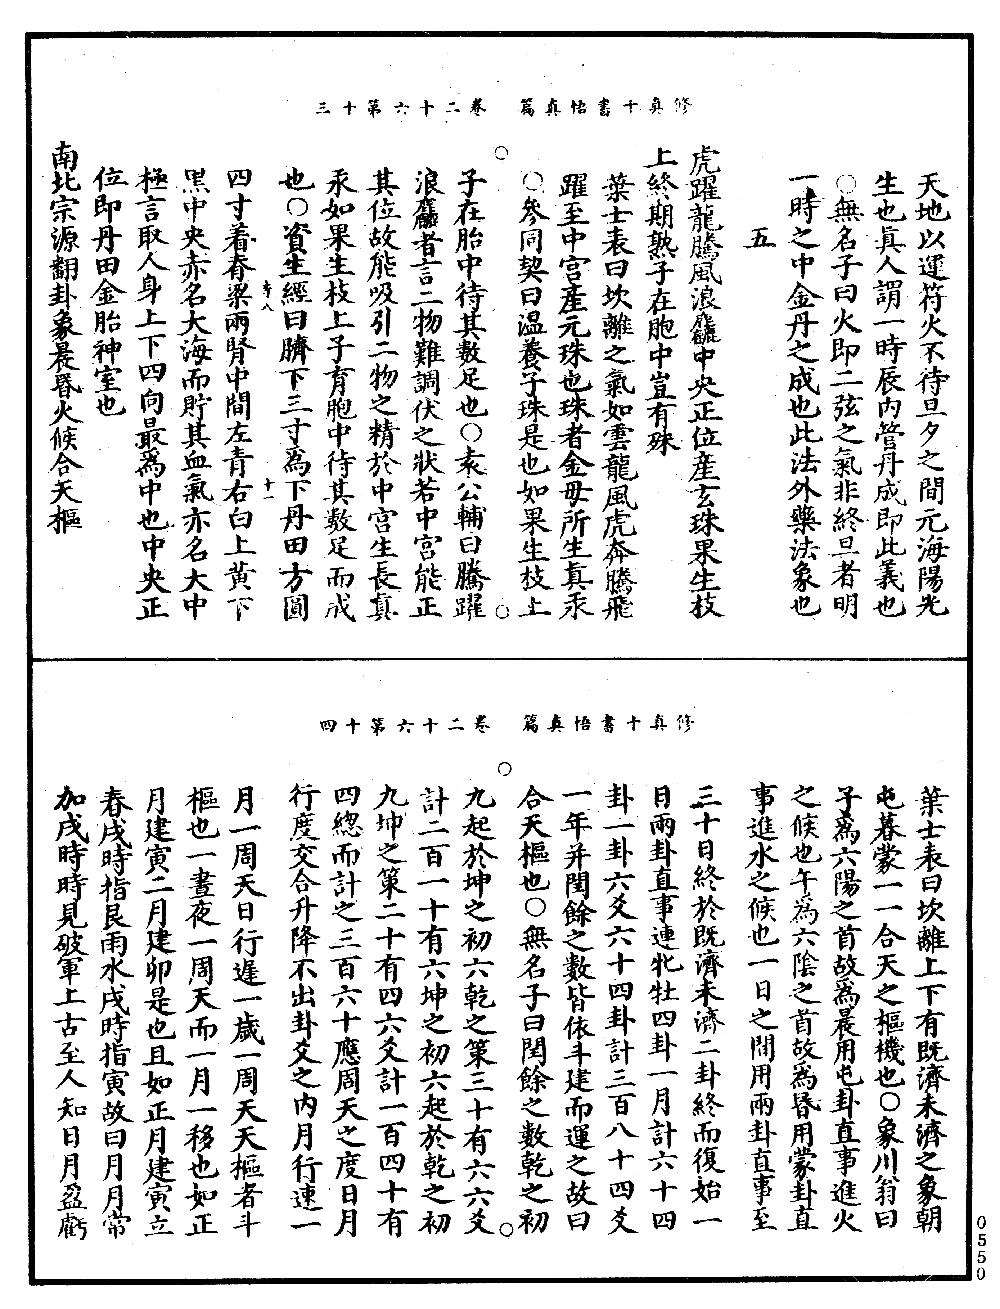 修真十書悟真篇　卷二十六第十三
天地以運符火不待旦夕之間元海陽光
生也眞人謂一時辰內管丹成即此義也
○無名子曰火即二弦之氣非終旦者明
一時之中金丹之成也此法外藥法象也
五
虎躍龍騰風浪麤中央正位産玄珠果生枝
上終期熟子在胞中豈有殊
葉士表曰坎離之氣如雲龍風虎奔騰飛
躍至中宮產元珠也珠者金母所生真汞
○參同契曰溫養子珠是也如果生枝上
子在胎中待其數足也○袁公輔曰騰躍
浪麤者言二物難調伏之狀若中宮能正
其位故能吸引二物之精於中宮生長真
汞如果生枝上子育胞中待其數足而成
也○資生經曰臍下三寸爲下丹田方圓
四寸着脊梁兩腎中間左青右白上黃下
黑中央赤名大海而貯其血氣亦名大中
極言取人身上下四向最爲中也中央正
位即丹田金胎神室也
南北宗源翻卦象晨昏火候合天樞
寺八
十一
修真十書悟真篇　卷二十六第十四
葉士表曰坎離上下有既濟未濟之象朝
屯暮蒙一一合天之樞機也○象川翁曰
子爲六陽之首故爲晨用屯卦直事進火
之候也午爲六陰之首故爲昏用蒙卦直
事進水之候也一日之間用兩卦直事至
三十日終於既濟未濟二卦終而復始一
日兩卦直事連牝牡四卦一月計六十四
卦一卦六爻六十四卦計三百八十四爻
一年并閏餘之數皆依斗建而運之故曰
合天樞也○無名子曰閏餘之數乾之初
九起於坤之初六乾之策三十有六六爻
計二百一十有六坤之初六起於乾之初
九坤之策二十有四六爻計一百四十有
四總而計之三百六十應周天之度日月
行度交合升降不出卦爻之內月行速一
月一周天日行遲一歲一周天天樞者斗
樞也一晝夜一周天而一月一移也如正
月建寅二月建卯是也且如正月建寅立
春戌時指艮雨水戌時指寅故曰月月常
加戌時時見破軍上古至人知日月盈虧
0550